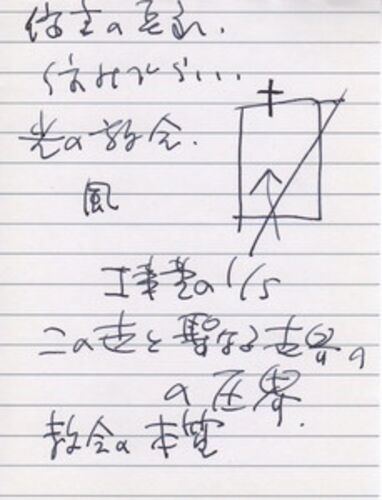 住吉の長屋.
住みづらい...
光の教会.
風
工事費の1/5
この世と聖なる世界の
の
教会の本質